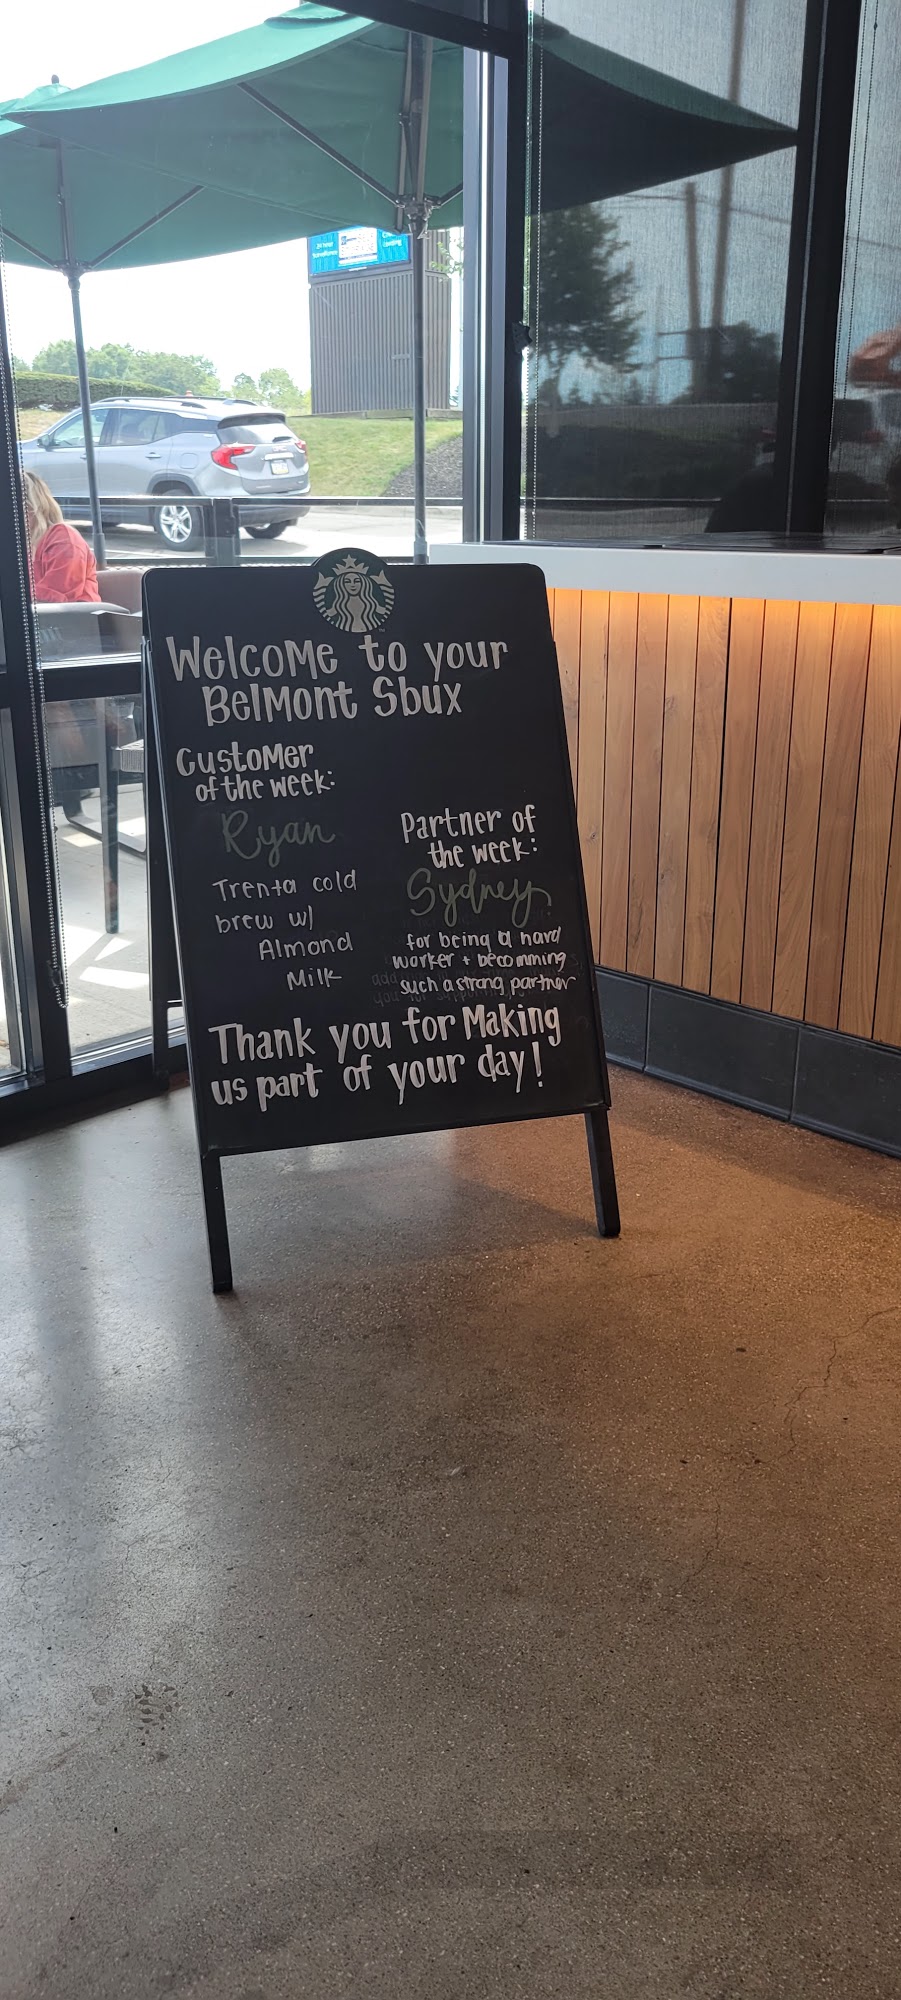 Welcome to your
Belmont Sbux
Customer
of the week:
Ryan
Trenta cold
brew w/
Almond
Milk
Partner of
the week:
Sydney
for being a hard
worker + becomming
such a strong partner
Thank you for Making
us part of your day!